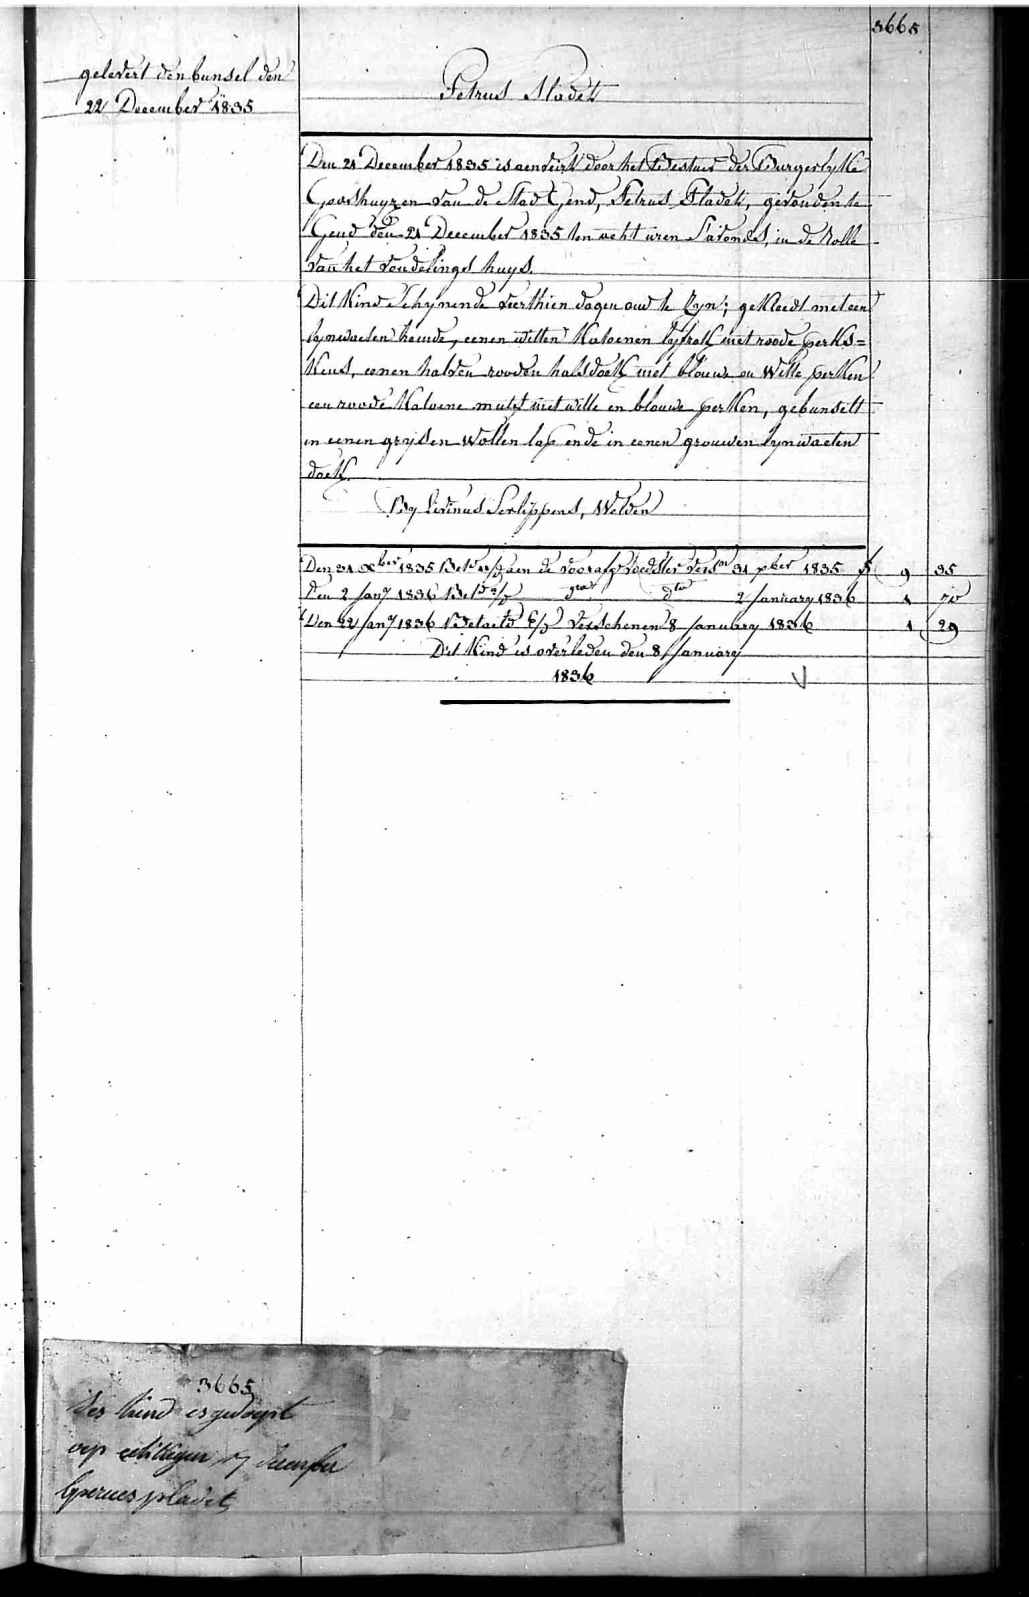 3665
gelevert den bunsel den
22 December 1835
Petrus Pladet
Den 21 December 1835 is aenveirt door het Bestuer der Burgerlyke
Godshuyzen van de Stad Gend, Petrus Pladet, gevonden te
Gend den 21 December 1835 ten acht uren S'avonds, in de Rolle
van het vondelings huys.
Dit Kind Schynende vierthien dagen oud te Zyn; gekleedt met een
lynwaeten hemde, eenen witten Katoenen lyfrok met roode perks=
kens, eenen halven rooden halsdoek met blouwe en Witte perken
een roode Katoene muts met witte en blouwe perken, gebunselt
in eenen grysen Wollen lap ende in eenen grouwen lynwaeten
doek.
By Livinus Serlippens, Welden
Den 31 Xber 1835 Bet de voorafg Voedster Versn 31 Xber 1835 f 9 35
Den 2 Jany 1836 2 January 1836 1 70
Den 22 Jany 1836 Betaeld Verschenen 8 January 1836 1 29
Dit Kind is overleden den 8 January
1836
3665
des kind es gedoopt
op december
pladet